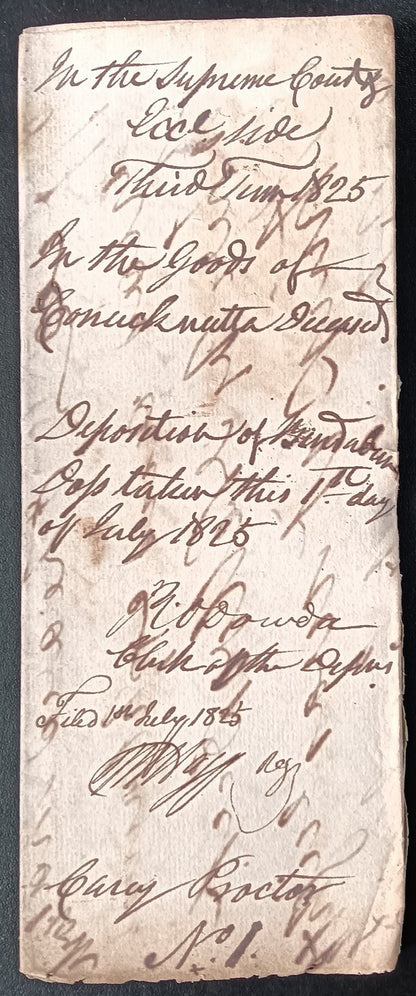 In the Supreme Court
Eccl side
Third Term 1825
In the Goods of
Conucknutta Deceased
Deposition of Bindabun
Doss taken this 1st day
of July 1825
O'Dowda
Clerk of the Depns
Filed 1st July 1825
Reg
Carey Proctor
No. 1.